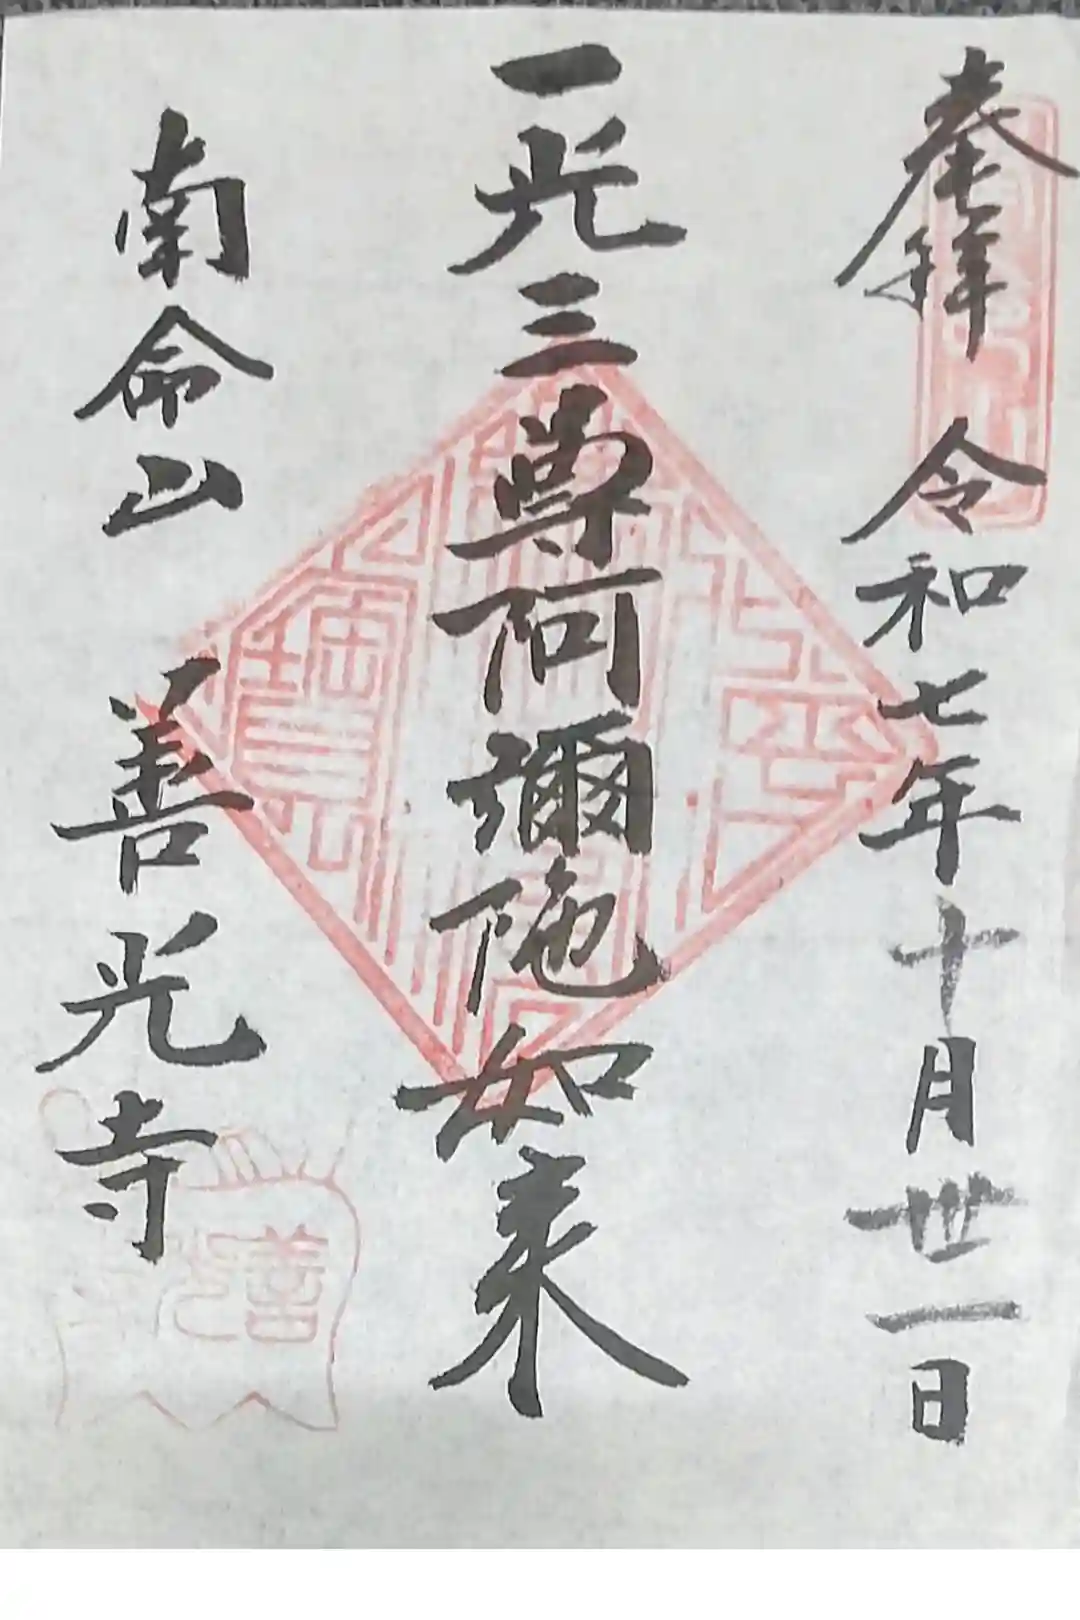 奉拜
令和七年十月丗一日
一光三尊阿彌陀如来
南命山
善光寺
善光寺